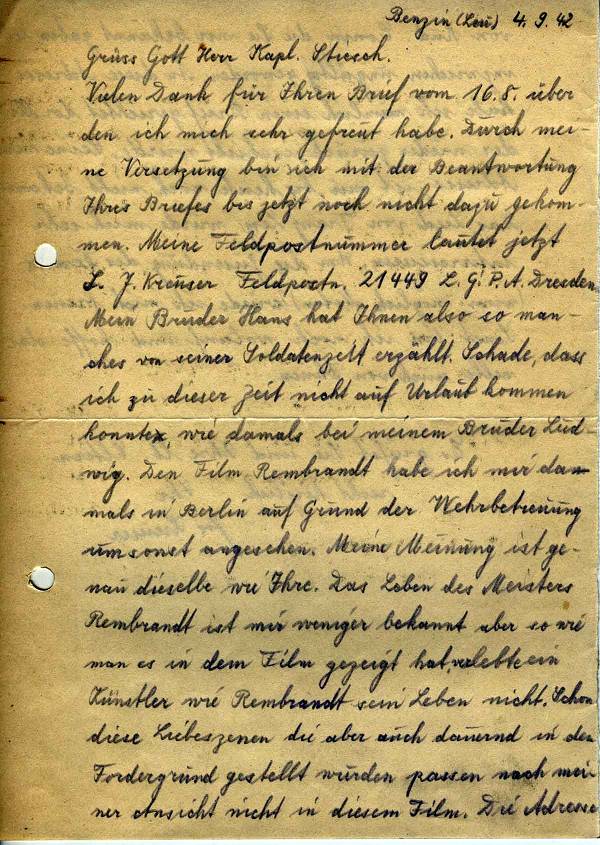 Benzin (Leu) 4. 9. 42
Grüss Gott Herr Kapl. Stiesch.
Vielen Dank für Ihren Brief vom 16.8. über
den ich mich sehr gefreut habe. Durch mei-
ne Versetzung bin ich mit der Beantwortung
Ihres Briefes bis jetzt noch nicht dazu gekom-
men. Meine Feldpostnummer lautet jetzt
S. J. Kreuser Feldpostn. 21449 L.G.P.A. Dresden
Mein Bruder Hans hat Ihnen also so man-
ches von seiner Soldatenzeit erzählt. Schade, dass
ich zu dieser Zeit nicht auf Urlaub kommen
konnte, wie damals bei meinem Bruder Lud-
wig. Den Film Rembrandt habe ich mir da-
mals in Berlin auf Grund der Wehrbetreuung
umsonst angesehen. Meine Meinung ist ge-
nau dieselbe wie Ihre. Das Leben des Meisters
Rembrandt ist mir weniger bekannt aber so wie
man es in dem Film gezeigt hat, verlebte ein
Künstler wie Rembrandt sein Leben nicht. Schon
diese Liebeszenen die aber auch dauernd in den
Fordergrund gestellt wurden passen nach mei-
ner Ansicht nicht in diesem Film. Die Adresse